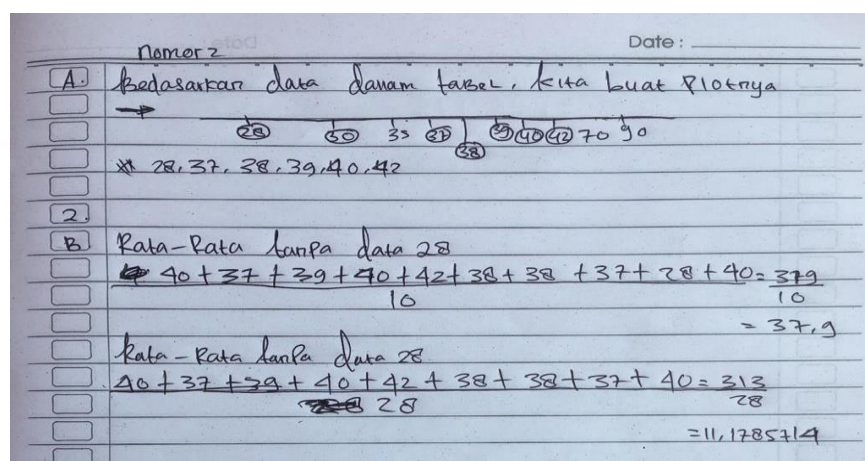 Date :
nomor 2
A. Bedasarkan data danam tabel, kita buat Plotnya
28 30 35 37 38 39 40 42 70 90
* 28, 37, 38, 39, 40, 42
2.
B Rata-Rata tanpa data 28
40 + 37 + 39 + 40 + 42 + 38 + 38 + 37 + 28 + 40 = 379
10 10
= 37,9
Rata-Rata tanpa data 28
40 + 37 + 39 + 40 + 42 + 38 + 38 + 37 + 40 = 313
28 28
= 11,1785714